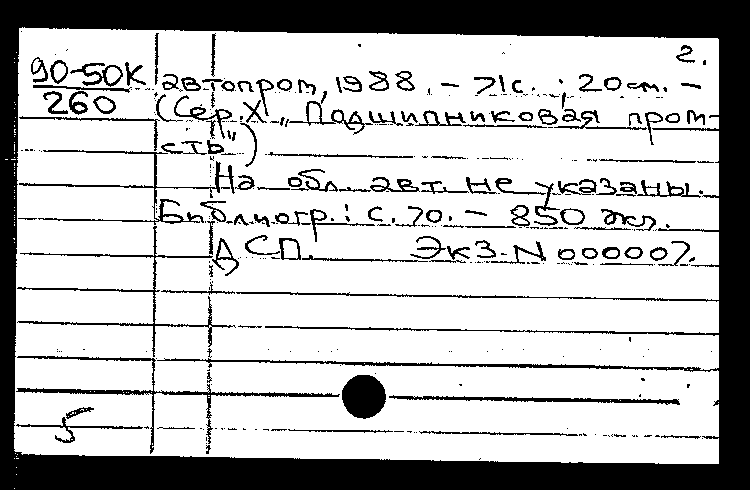 2.
90-50К
260
автопром, 1988. – 71с. ; 20см. –
(Сер.XI „Подшипниковая пром-
сть")
На обл. авт. не указаны.
Библиогр.: с. 70. – 850 экз.
ДСП. Экз. N 000007.
5